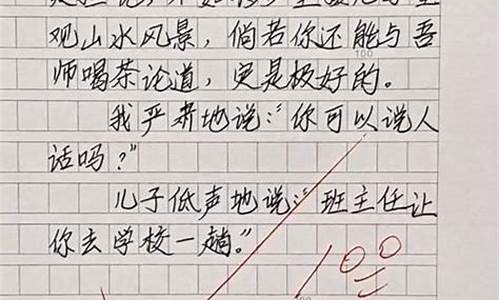 观山水风景，倘若你还能与吾
师喝茶论道，更是极好的。
100
我严肃地说：“你可以说人
话吗？”
儿子低声地说：“班主任让
你去学校一趟。”
100
100